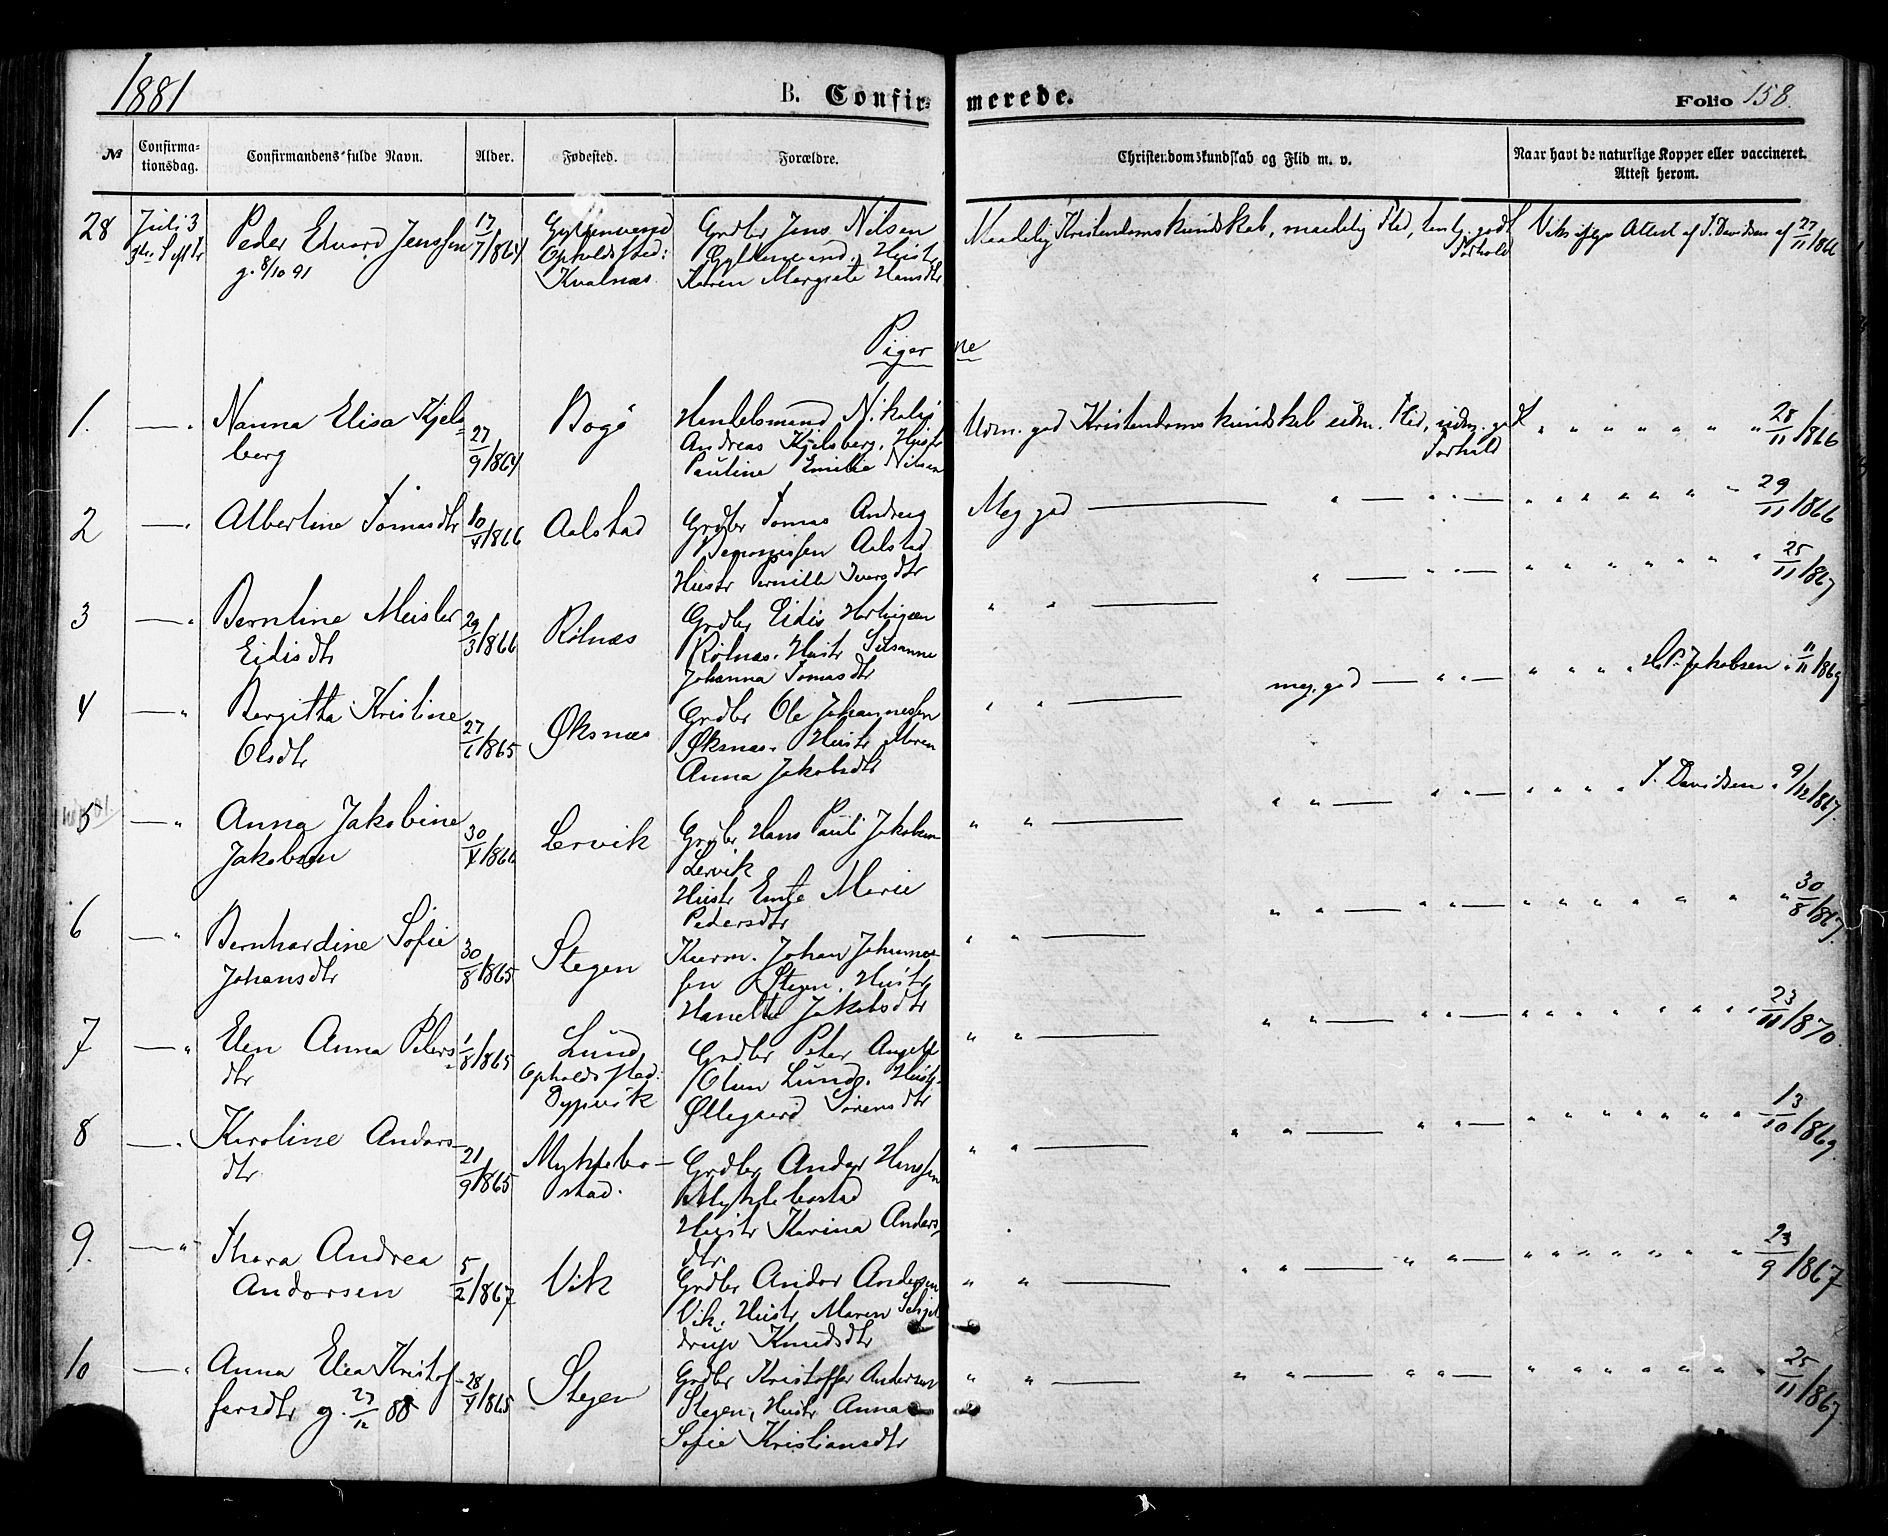 1881
B. Confir- merede.
Folio 158.
№
Confirma-
tionsdag.
Confirmandens fulde Navn.
Alder.
Fødested.
Forældre.
Christendomskundskab og Flid m. v.
Naar havt de naturlige Kopper eller vaccineret.
Attest herom.
28
Juli 3
Peder Edvard Jenssen
g. 8/10 91
17/7 1864
Gyltenvand
Opholdssted:
Kvalnæs
Grdbr Jens Nilsen
Gyltenvand, Hustr
Karen Margrete Hansdtr
Maadelig Kristendomskundskab, maadelig Flid, temlig godt
Forhold
Attest af J. Davidsen af 27/11 1866
Piger ne
1.
Nanna Elisa Kjels-
berg
27/9 1864
Bogø
Handelsmand Nikolai
Andreas Kjelsberg, Hustr
Pauline Emilie Nilsen
Udm. god Kristendomskundskab udm. Flid, udm. godt
Forhold
" " " " " " " 28/11 1866
2
Albertine Tomasdtr
10/4 1866
Aalstad
Grdbr Tomas Andreas
Aalstad
Hustr Pernille Iversdtr
Meg. god
" " " " " " 29/11 1866
3
Berntine Meisler
Eidisdtr
29/3 1866
Rölnæs
Grdbr Eidis Hartvigsen
Rölnæs. Hustr Susanne
Johanna Tomasdtr
" " " " " " " 25/11 1867
4
Bergitta Kristine
Olsdtr
27/6 1865
Øksnæs
Grdbr Ole Johannessen
Øksnæs. Hustr Maren
Anna Jakobsdtr
meg. god
" " " " H. P. Jakobsen " 11/11 1869
5
Anna Jakobine
Jakobsen
30/4 1866
Lervik
Grdbr Hans Pauli Jakobsen
Lervik
Hustr Marie
Pedersdtr
" " " " J. Davidsen " 9/12 1867.
6
Bernhardine Sofie
Johansdtr
30/8 1865
Stegen
Johan Johannes-
sen Stegen, Hustr
Jakobsdtr
" " " " " " " 30/8 1867.
7
Elen Anna Peters-
dtr
1/8 1865
Lund
Opholdssted:
Dypvik
Grdbr Peter Angell
Olsen Lund. Hustr
Øllegaard Sørensdtr
" " " " " " " 23/11 1870.
8
Karoline Andors-
dtr
21/9 1865
Myklebo-
stad.
Grdbr Andor Hanssen
Myklebostad
Hustr Karina Anders-
dtr
" " " " " " " 13/10 1869.
9.
Thora Andrea
Andorsen
5/2 1867
Vik
Grdbr Andor Andersen
Vik, Hustr Maren Schjel-
drup Knudsdtr
" " " " " " " 23/9 1867
10
Anna Elea Kristof-
fersdtr g. 27/12 88
28/4 1865
Stegen
Grdbr Kristoffer Andersen
Stegen, Hustr Anna
Sofie Kristiansdtr
" " " " " " " 25/11 1867